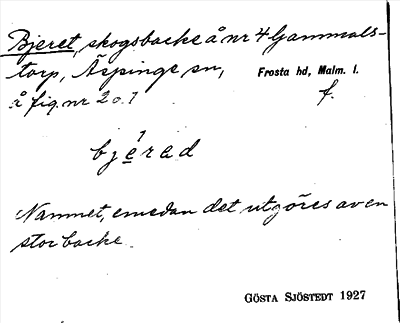 Bjeret, skogsbacke å nr 4 Gammals-
torp, Äspinge sn, Frosta hd, Malm. l.
å fig. nr 2 o. 1 f.
bjérad
Namnet, emedan det utgöres av en
stor backe.
GÖSTA SJÖSTEDT 1927